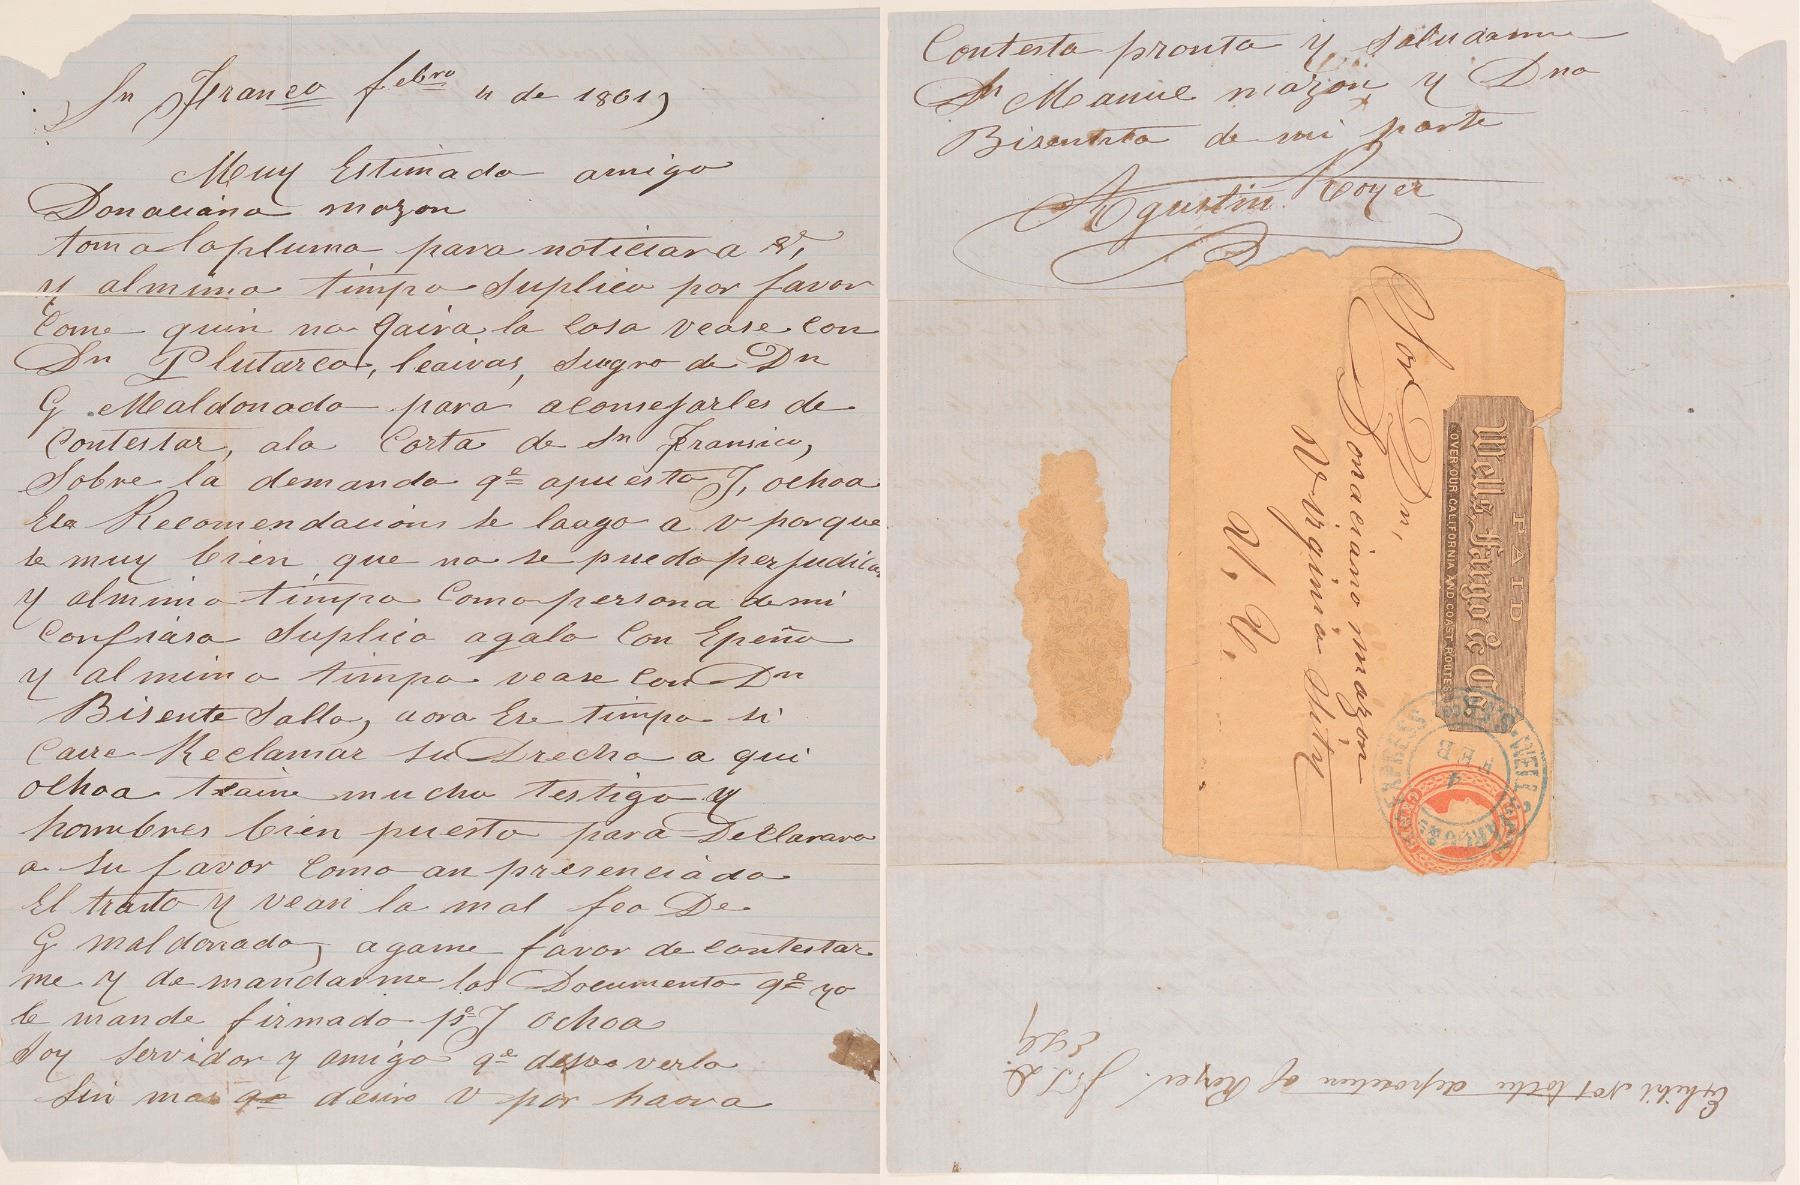 Sn Franco febro 4 de 1861,
Muy Estimado amigo
Donaciano mazon
tomo la pluma para noticiara V,
y al mimo timpo suplico por favor
Come quin no la cosa vease con
Dn Plutarco, leaivas, sugro de Dn
G Maldonado para aconsejarles de
Contestar, ala Corta de Sn Fransico,
Sobre la demanda qe apuesto J, ochoa
Esa Recomendacions le laago a v porque
se muy bien que no se puedo perjudicar
y al mimo timpo Como persona de mi
Confiasa suplico agalo Con Epeño
y al mimo timpo vease con Dn
Bisente Salla, aora Ese timpo si
Caire Reclamar su Drecho a qui
ochoa traine mucho testigo y
hombres bien puesto para Declarara
a su favor Como an presenciado
El trarto y vean la mal feo De
G maldonado, agame favor de contestar
me y de mandarme los Documento qe yo
le mande firmado pr J ochoa
Soy servidor y amigo qe deseo verlo
Sin mas qe desiro V por haora
Contesta pronto y saludarme
Dn Manuel mazon y Dna
Bisentita de mi parte
Agustin Royer
PAID
Wells, Fargo & Co.
OVER OUR CALIFORNIA AND COAST ROUTES
Sor Dn,
Donaciano mazon
Virginia Sity
U, U,
WELLS, FARGO & EXPRESS
4
FEB
Exhibit No 1 to the deposition of Royer. J. T. D.